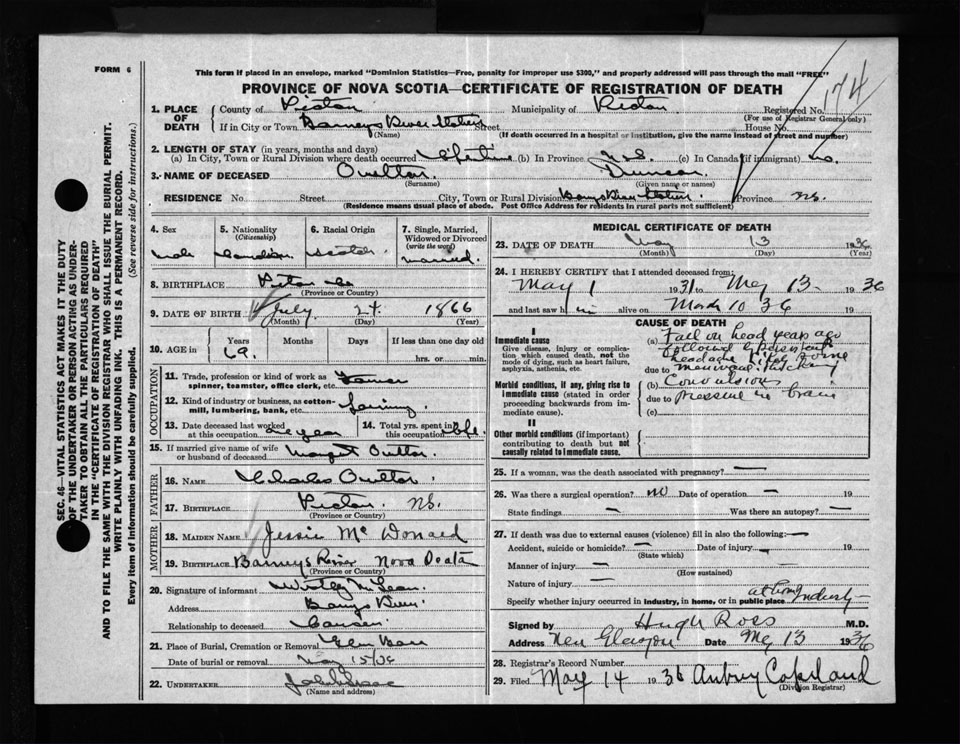 FORM 6
This form if placed in an envelope, marked "Dominion Statistics—Free, penalty for improper use $300," and properly addressed will pass through the mail "FREE"
PROVINCE OF NOVA SCOTIA—CERTIFICATE OF REGISTRATION OF DEATH
174
1. PLACE OF DEATH County of Pictou Municipality of Pictou Registered No.
(For use of Registrar General only)
If in City or Town Barneys River Station Street House No.
(Name) (If death occurred in a hospital or institution, give the name instead of street and number)
2. LENGTH OF STAY (in years, months and days)
(a) In City, Town or Rural Division where death occurred Lifetime (b) In Province N.S. (c) In Canada (if immigrant) no.
3. NAME OF DECEASED Oulton. Duncan.
(Surname) (Given name or names)
RESIDENCE No. Street City, Town or Rural Division Barneys River Station. Province N.S.
(Residence means usual place of abode. Post Office Address for residents in rural parts not sufficient)
4. Sex 5. Nationality 6. Racial Origin 7. Single, Married, Widowed or Divorced
(Citizenship) (write the word)
male Canadian Scotch married
8. BIRTHPLACE Pictou Co
(Province or Country)
9. DATE OF BIRTH July 24 1866
(Month) (Day) (Year)
10. AGE in Years Months Days If less than one day old
69. hrs. or min.
OCCUPATION
11. Trade, profession or kind of work as spinner, teamster, office clerk, etc. Farmer
12. Kind of industry or business, as cotton-mill, lumbering, bank, etc. Farming
13. Date deceased last worked at this occupation year 14. Total yrs. spent in this occupation life
15. If married give name of wife or husband of deceased Margret Oulton.
FATHER
16. NAME Charles Oulton
17. BIRTHPLACE Pictou N.S.
(Province or Country)
MOTHER
18. MAIDEN NAME Jessie McDonald
19. BIRTHPLACE Barneys River Nova Scotia
(Province or Country)
20. Signature of informant
Address Barneys River.
Relationship to deceased Cousin.
21. Place of Burial, Cremation or Removal Glen Bard
Date of burial or removal May 15/36
22. UNDERTAKER
(Name and address)
MEDICAL CERTIFICATE OF DEATH
23. DATE OF DEATH May 13 1936
(Month) (Day) (Year)
24. I HEREBY CERTIFY that I attended deceased from:
May 1 1931 to May 13 1936
and last saw him alive on March 10 36 19
CAUSE OF DEATH
I
Immediate cause
Give disease, injury or complication which caused death, not the mode of dying, such as heart failure, asphyxia, asthenia, etc.
Morbid conditions, if any, giving rise to immediate cause (stated in order proceeding backwards from immediate cause).
II
Other morbid conditions (if important) contributing to death but not causally related to immediate cause.
(a) Fall on head years ago
followed by persistent
headache
due to meningeal thickening
(b) Convulsions
due to pressure on brain
(c)
25. If a woman, was the death associated with pregnancy? —
26. Was there a surgical operation? no Date of operation — 19
State findings — Was there an autopsy? —
27. If death was due to external causes (violence) fill in also the following: —
Accident, suicide or homicide? — Date of injury — 19
(State which)
Manner of injury —
(How sustained)
Nature of injury —
Specify whether injury occurred in Industry, in home, or in public place at home Industry
Signed by Hugh Ross M.D.
Address New Glasgow Date May 13 1936
28. Registrar's Record Number
29. Filed May 14 1936 Aubrey Copeland
(Division Registrar)
SEC. 46—VITAL STATISTICS ACT MAKES IT THE DUTY OF THE UNDERTAKER OR PERSON ACTING AS UNDERTAKER TO OBTAIN ALL THE PARTICULARS REQUIRED IN THE "CERTIFICATE OF REGISTRATION OF DEATH"
AND TO FILE THE SAME WITH THE DIVISION REGISTRAR WHO SHALL ISSUE THE BURIAL PERMIT.
WRITE PLAINLY WITH UNFADING INK. THIS IS A PERMANENT RECORD.
Every item of Information should be carefully supplied. (See reverse side for instructions.)